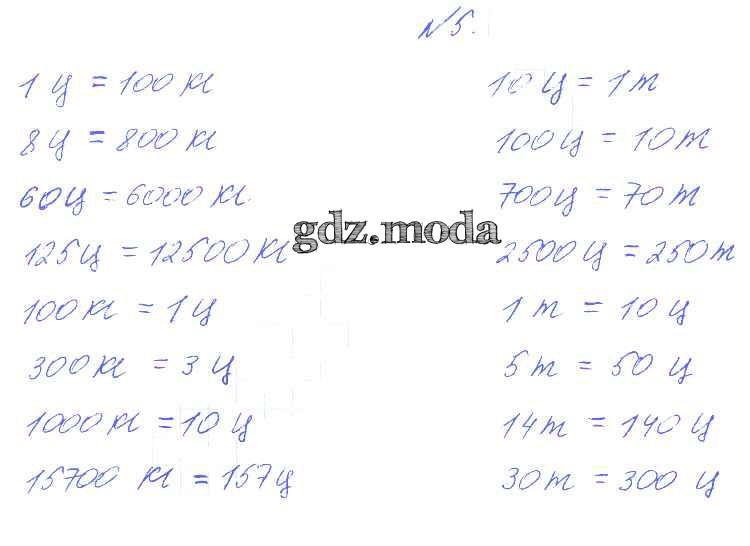 №5.
1 ц = 100 кг
8 ц = 800 кг
60 ц = 6000 кг.
125 ц = 12500 кг
100 кг = 1 ц
300 кг = 3 ц
1000 кг = 10 ц
15700 кг = 157 ц
10 ц = 1 т
100 ц = 10 т
700 ц = 70 т
2500 ц = 250 т
1 т = 10 ц
5 т = 50 ц
14 т = 140 ц
30 т = 300 ц
gdz.moda